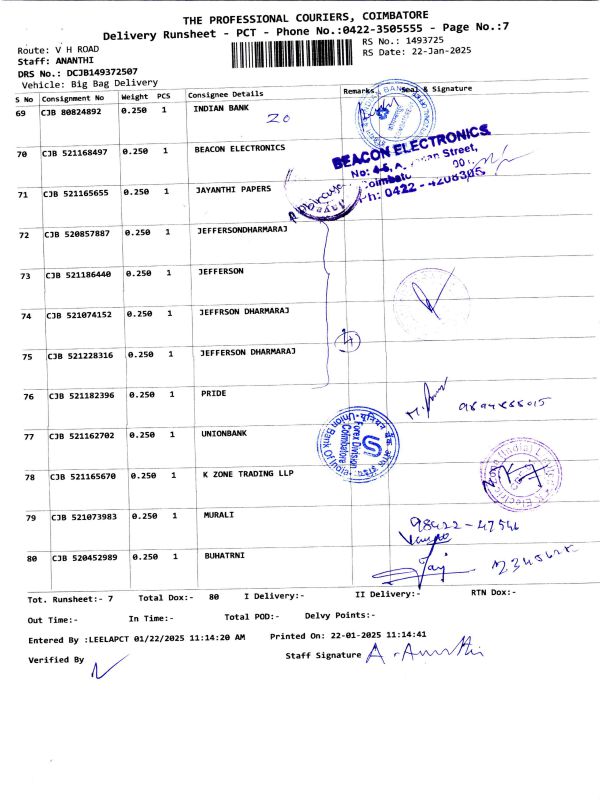 THE PROFESSIONAL COURIERS, COIMBATORE
Delivery Runsheet - PCT - Phone No.:0422-3505555 - Page No.:7
Route: V H ROAD
RS No.: 1493725
Staff: ANANTHI
RS Date: 22-Jan-2025
DRS No.: DCJB149372507
Vehicle: Big Bag Delivery
S No Consignment No Weight PCS Consignee Details Remarks Seal & Signature
69 CJB 80824892 0.250 1 INDIAN BANK
20
70 CJB 521168497 0.250 1 BEACON ELECTRONICS
BEACON ELECTRONICS
No: 4-5, Street,
Coimbato
Ph: 0422 - 4208305
71 CJB 521165655 0.250 1 JAYANTHI PAPERS
72 CJB 520857887 0.250 1 JEFFERSONDHARMARAJ
73 CJB 521186440 0.250 1 JEFFERSON
74 CJB 521074152 0.250 1 JEFFRSON DHARMARAJ
4
75 CJB 521228316 0.250 1 JEFFERSON DHARMARAJ
76 CJB 521182396 0.250 1 PRIDE
77 CJB 521162702 0.250 1 UNIONBANK
Union Bank Of India
Forex Division
Coimbatore
78 CJB 521165670 0.250 1 K ZONE TRADING LLP
79 CJB 521073983 0.250 1 MURALI
98422-47546
80 CJB 520452989 0.250 1 BUHATRNI
Tot. Runsheet:- 7 Total Dox:- 80 I Delivery:- II Delivery:- RTN Dox:-
Out Time:- In Time:- Total POD:- Delvy Points:-
Entered By :LEELAPCT 01/22/2025 11:14:20 AM Printed On: 22-01-2025 11:14:41
Verified By Staff Signature A. Ananthi